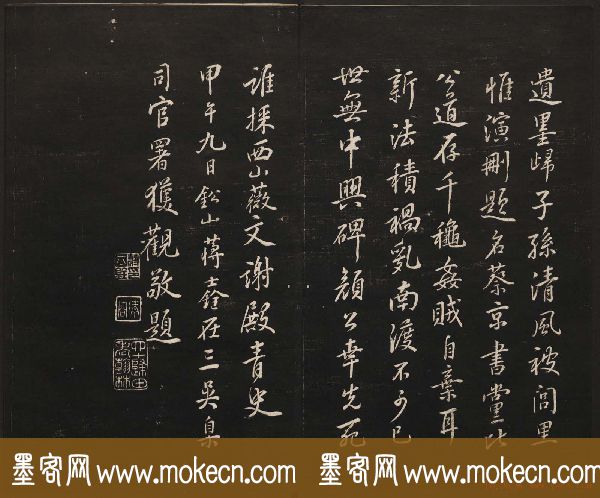 遺墨歸子孫清風被閭里
惟演刪題名蔡京書黨比
公道存千龝姦賊自棄耳
新法積禍亂南渡不少已
世無中興碑顏公幸先死
誰採西山薇文謝殿青史
甲午九日鈆山蔣士銓在三吳臬
司官署獲觀敬題
墨客网 www.mokecn.com 墨客网 www.mokecn.com